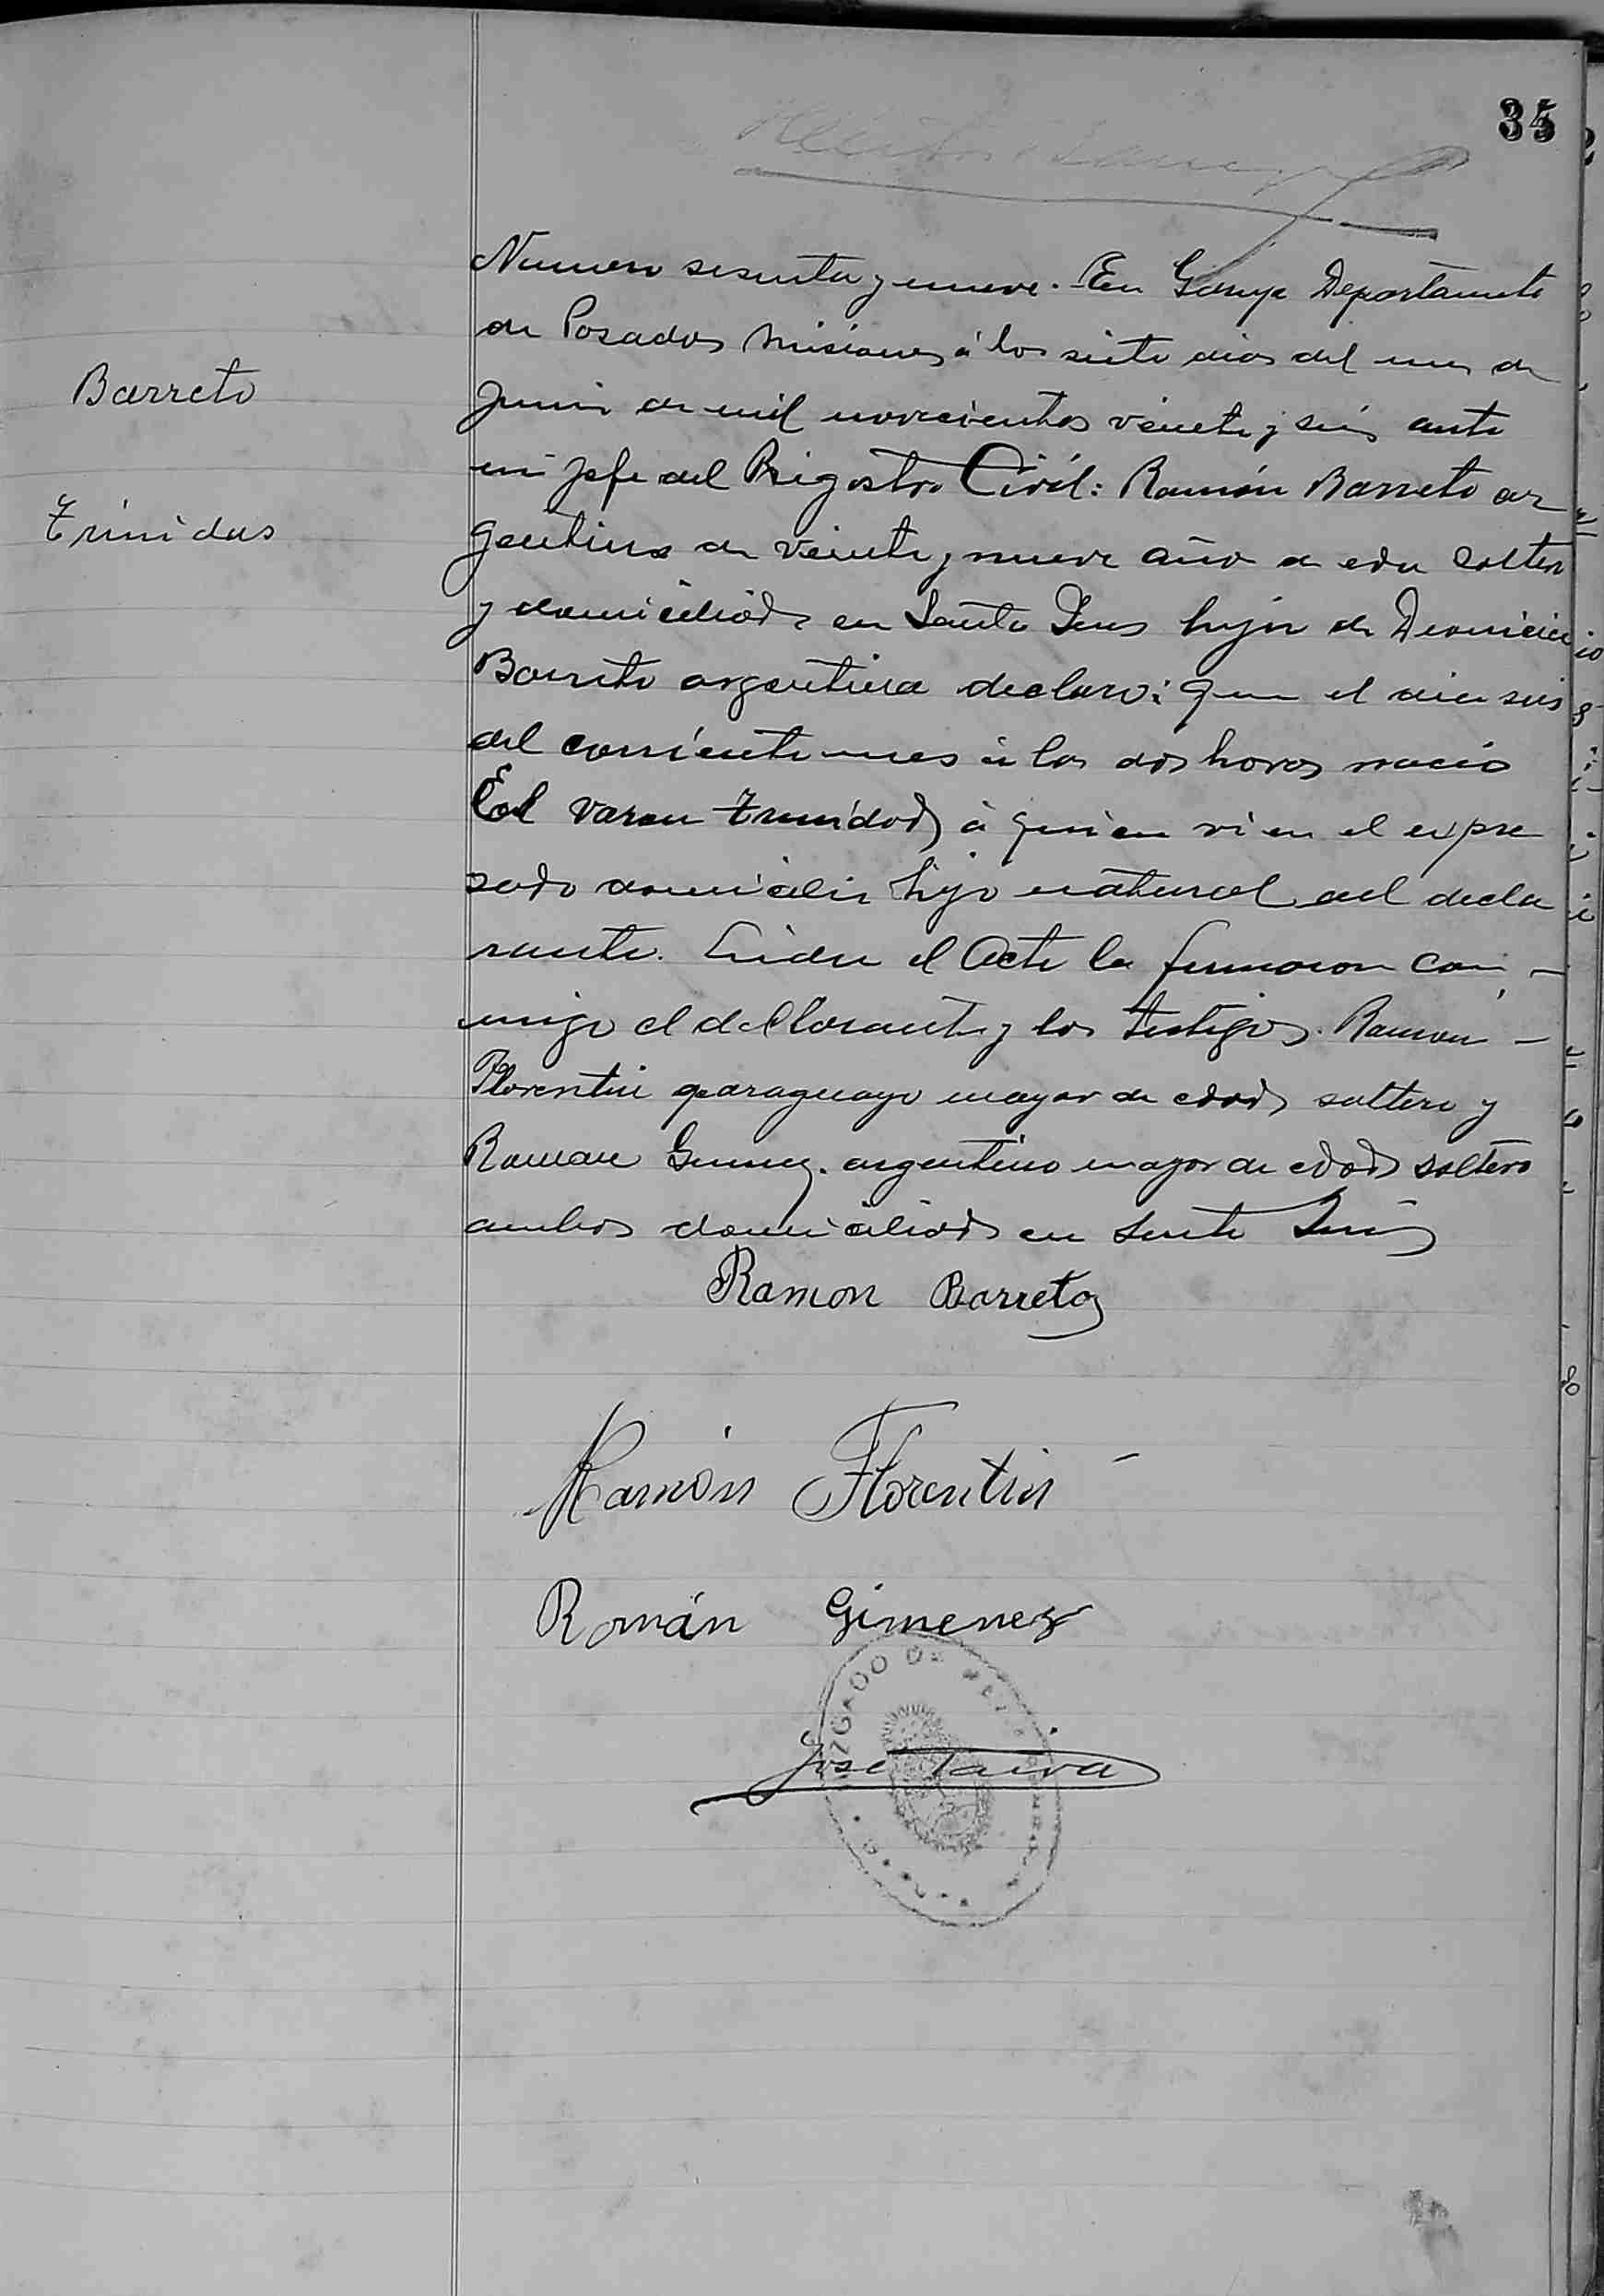 34
Numero sesenta y nueve. En Garupa Departamento
de Posadas Misiones á los siete dias del mes de
Barreto
Junio de mil novecientos veinte y seis ante
mi Jefe del Registro Civil: Ramón Barreto ar
Trinidas
gentino de veinte y nueve año de eda solter
y domiciliado en Santa Ines hijo de
Barreto argentina declaro: que el dia seis
del corriente mes á las dos horas nacio
El varon Trinidad á quien vi en el expre
sado domicilio hijo natural del decla
rante. Leida el Acta la firmaron con
migo el declarante y los testigos. Ramon
Florentin paraguayo mayor de edad soltero y
Roman Gimenez. argentino mayor de edad soltero
ambos domiciliados en Santa Ines
Ramon Barreto
Ramón Florentin
Román Gimenez
JUZGADO DE PAZ
José Paiva